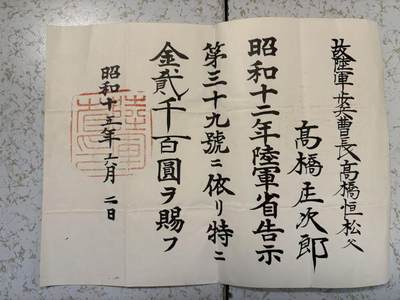 故陸軍歩兵曹長高橋恒松父
高橋庄次郎
昭和十二年陸軍省告示
第三十九號ニ依リ特ニ
金貳千百圓ヲ賜フ
昭和十五年六月二日